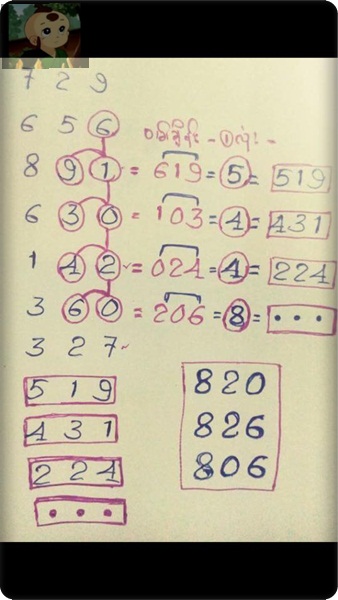 7 2 9
6 5 6
ဝမ်းခွဲကိန်း - ၁လုံး -
8 9 1 = 619 = 5 = 519
6 3 0 = 103 = 4 = 431
1 4 2 = 024 = 4 = 224
3 6 0 = 206 = 8 = • • •
3 2 7
5 1 9
4 3 1
2 2 4
• • •
820
826
806